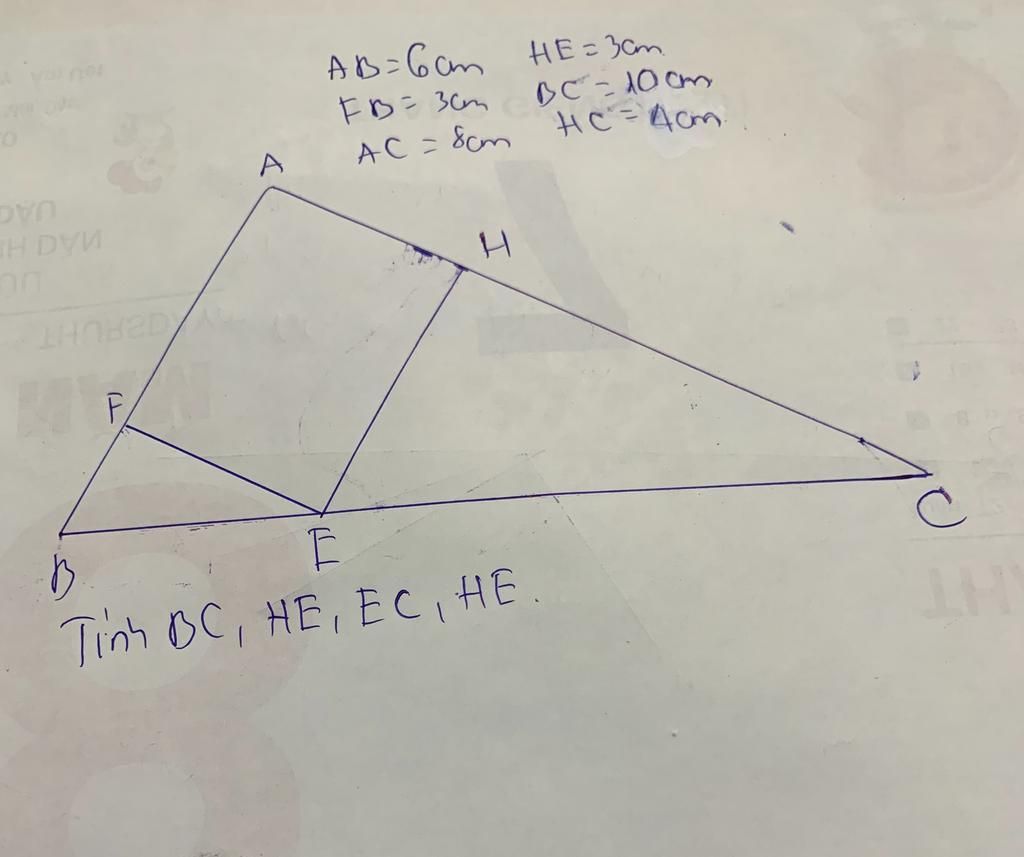 AB = 6cm HE = 3cm
FB = 3cm BC = 10cm
AC = 8cm HC = 4cm
A
H
F
B
E
C
Tính BC, HE, EC, HE.
THURSDAY